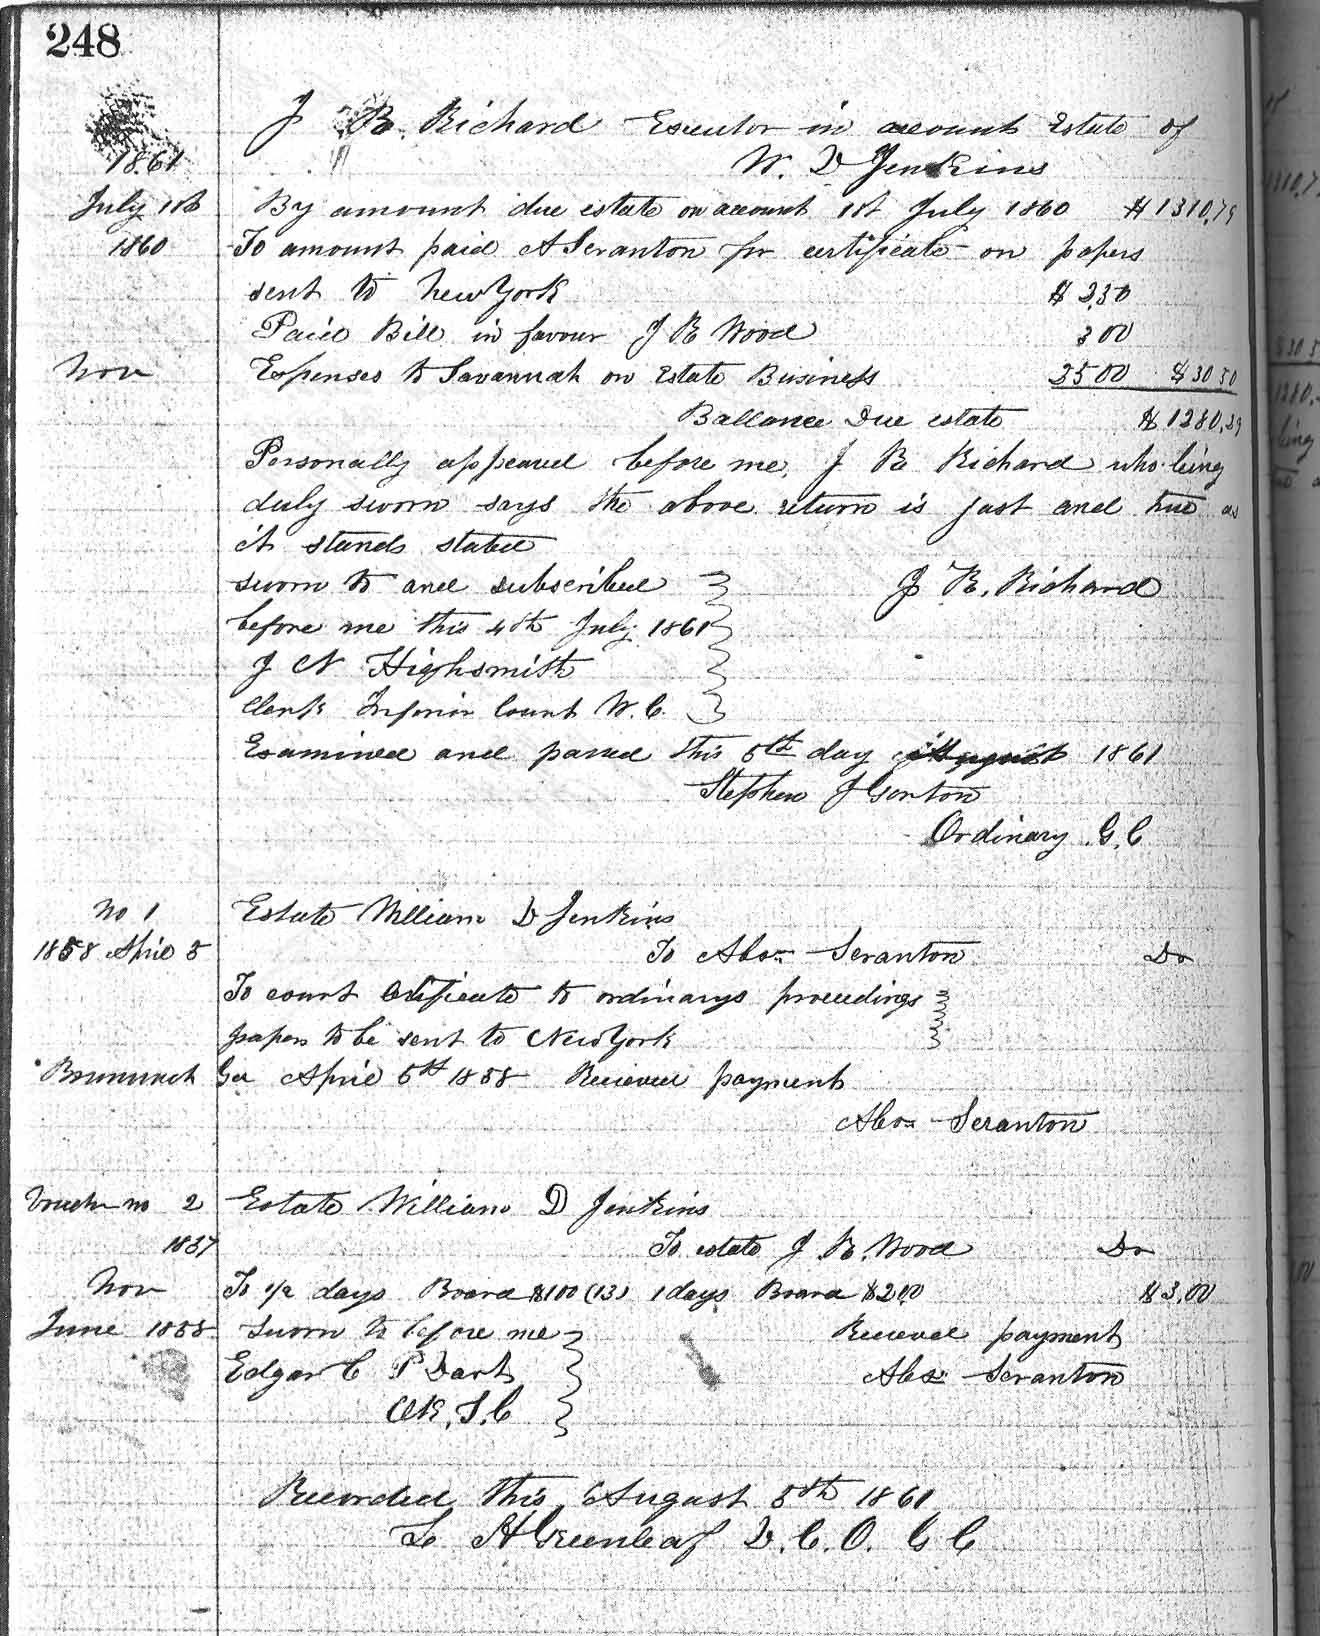 248
J B. Richard Executor in account Estate of
1861 W. D Jenkins
July 1st By amount due estate on account 1st July 1860 $1310,79
1860 To amount paid A Scranton for certificate on papers
sent to New York $ 2,50
Paid Bill in favour J B Wood 3 00
Nov Expenses to Savannah on Estate Business 25 00 $30 50
Ballance Due estate $1280,29
Personally appeared before me, J B Richard who being
duly sworn says the above return is just and true as
it stands stated
sworn to and subscribed J B. Richard
before me this 4th July 1861
J N Highsmith
Clerk Inferior Court W. C.
Examined and passed this 5th day of August 1861
Stephen J Gorton
Ordinary G. C
No 1 Estate William D Jenkins
1858 April 5 To Alex Scranton Dr
To court Certificate to ordinarys proceedings
papers to be sent to New York
Brunswick Ga April 5th 1858 Recieved payment
Alex Scranton
Voucher no 2 Estate William D Jenkins
1857 To estate J B. Wood Dr
Nov To 1/2 days Board $1 00 (13) 1 days Board $2 00 $3,00
June 1858 sworn to before me Recieved payment
Edgar C P Dart Alex Scranton
Clk, S. C
Recorded this August 5th 1861
L H Greenleaf D. C. O. G C